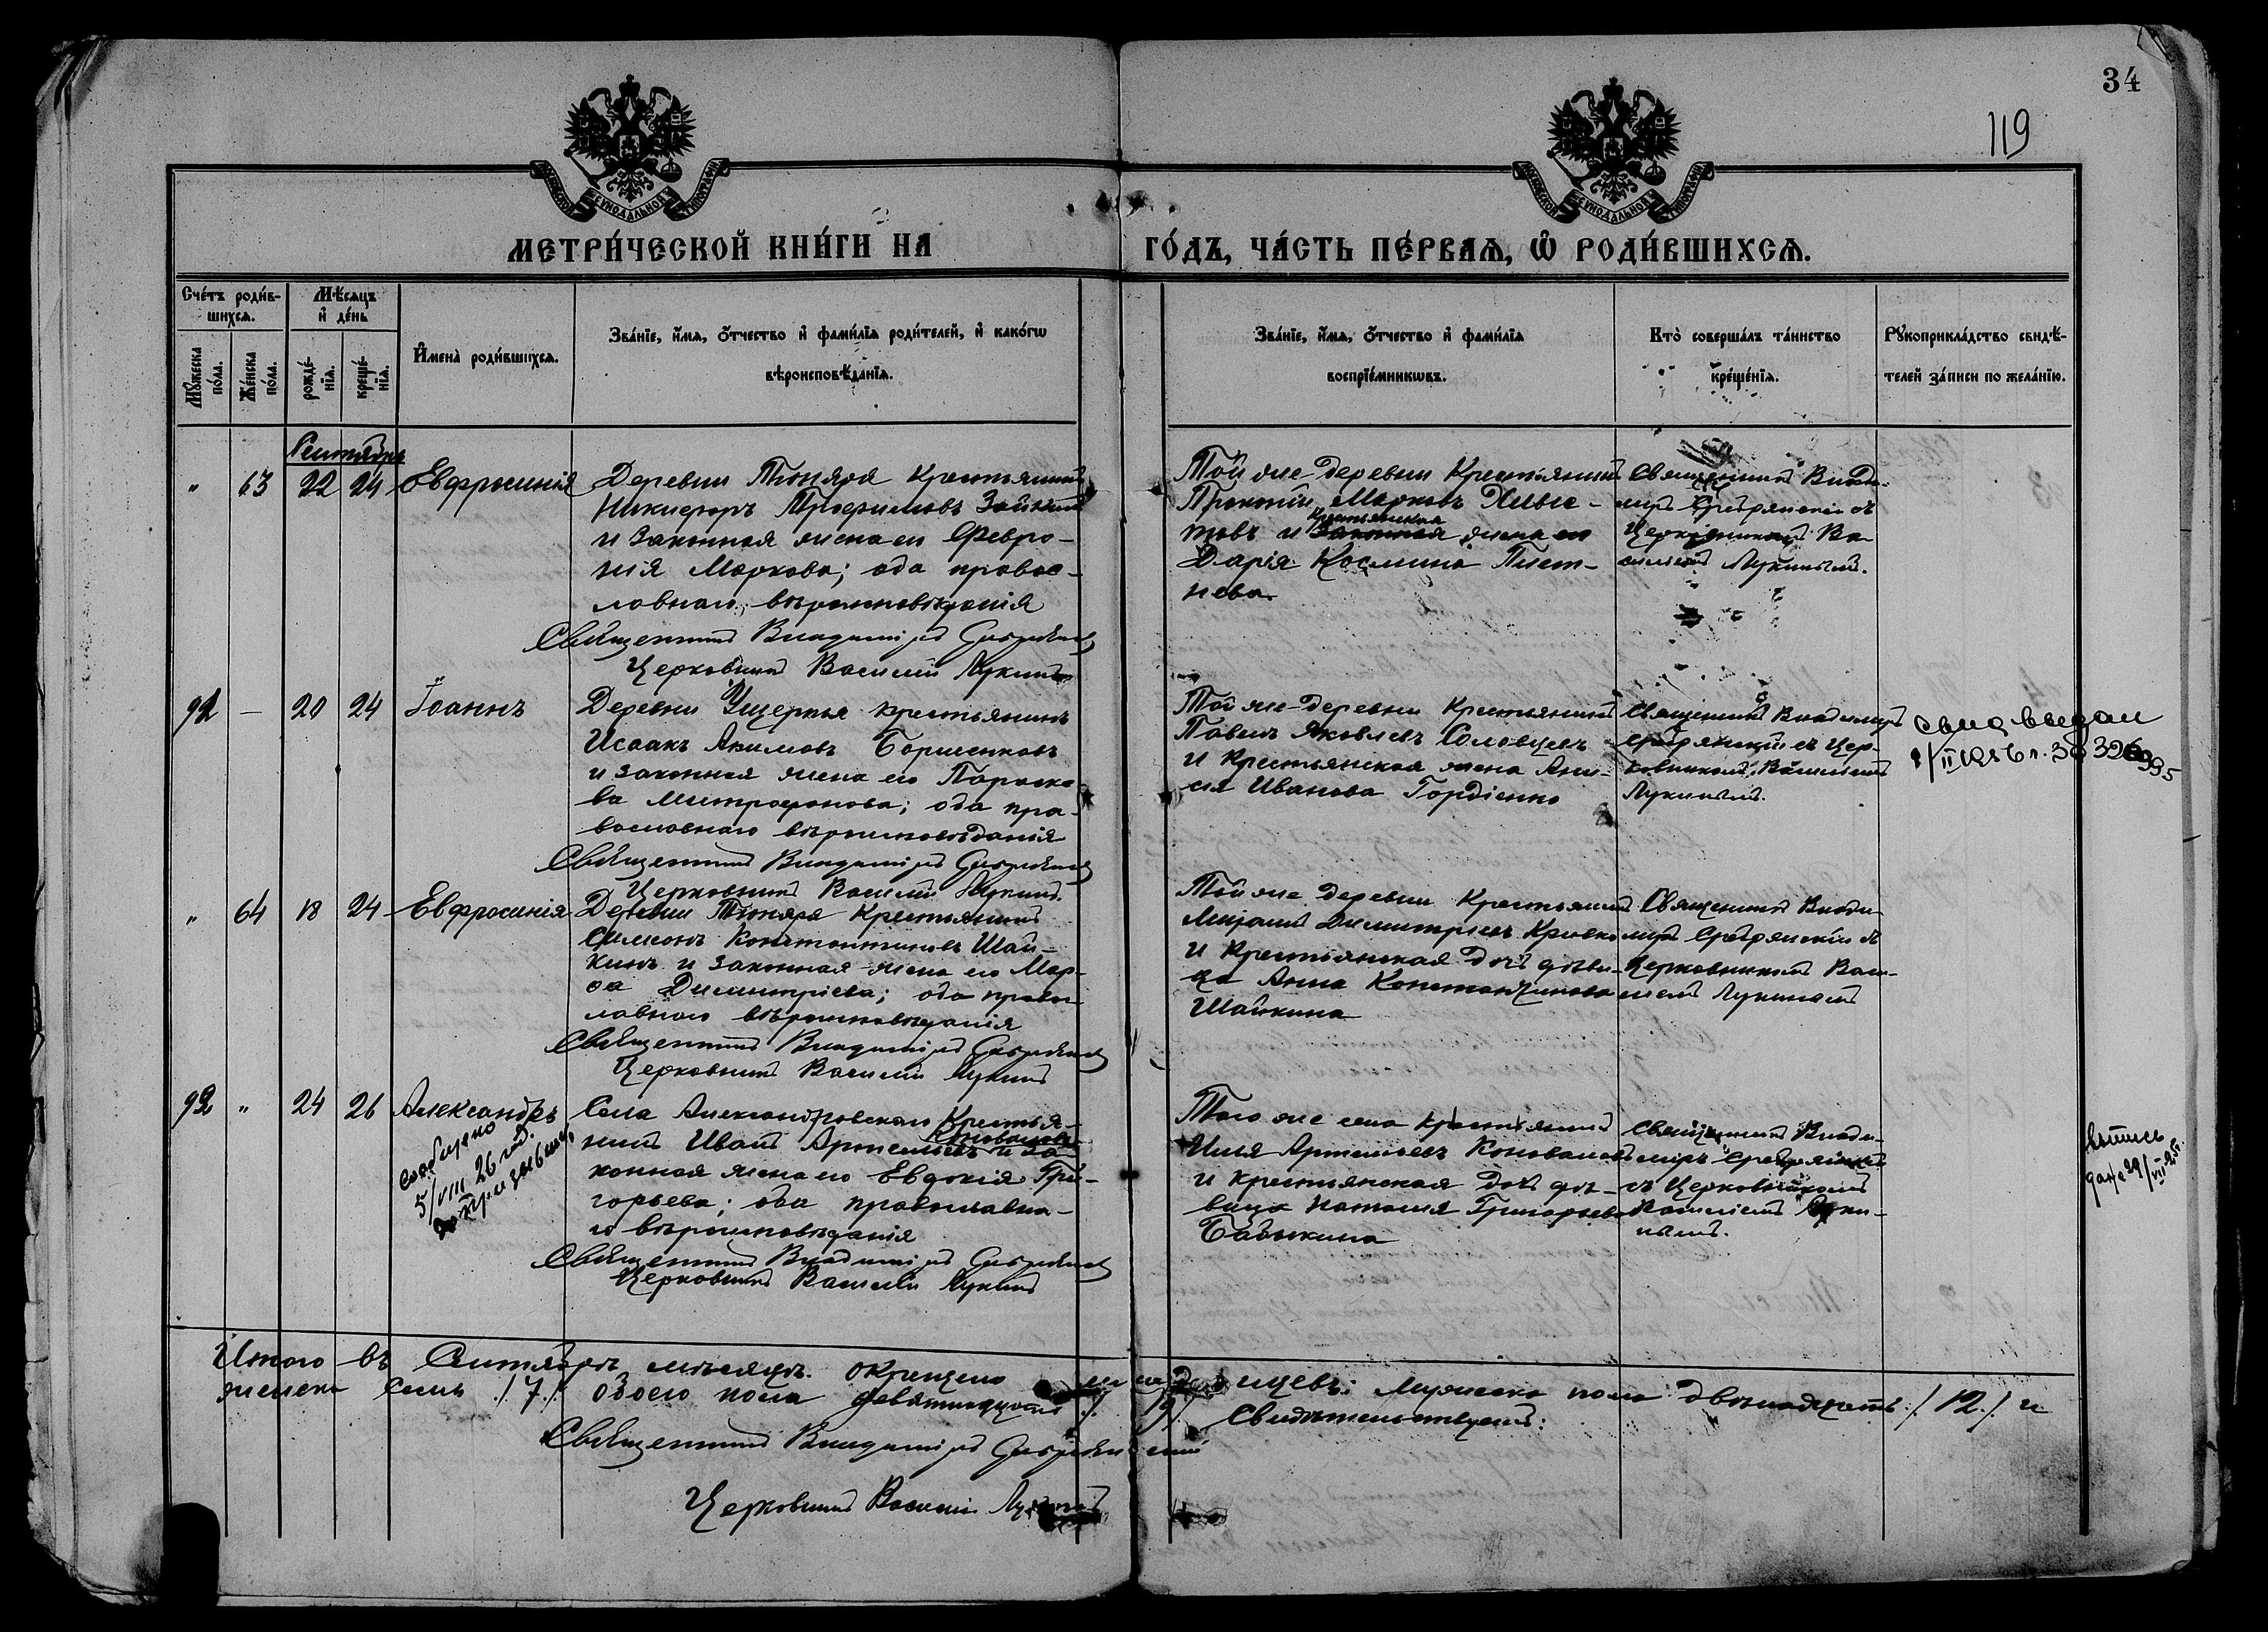 34
119
МЕТРИ́ЧЕСКОЙ КНИ́ГИ НА ГО́ДЪ, ЧА́СТЬ ПЕ́РВАѦ, Ѡ҆ РОДИ́ВШИХСѦ.
Сче́тъ роди́в-
шихсѧ.
Мꙋ́жеска по́ла.
Же́нска по́ла.
Мѣ́сяцъ
и҆ де́нь
рожде́-
нїѧ.
креще́-
нїѧ.
И҆мена̀ роди́вшихсѧ.
Зва́нїе, и҆́мѧ, ѻ҆́тчество и҆ фами́лїѧ роди́телей, и҆ како́гѡ
вѣроисповѣ́данїѧ.
Зва́нїе, и҆́мѧ, ѻ҆́тчество и҆ фами́лїѧ
воспрїе́мникѡвъ.
Кто̀ соверша́лъ та́инство
креще́нїѧ.
Рꙋкоприкла́дство свидѣ́-
телей за́писи по жела́нїю.
Сентябрь
" 63 22 24 Евфросинія
Деревни Крестьянинъ
Никифоръ Трофимовъ
и законная жена его Февро-
нія Маркова; оба правос-
лавнаго вѣроисповѣданія
Священникъ Владиміръ
Церковникъ Василій Лукинъ
Той же деревни Крестьянинъ
Прокопій Марковъ
товъ и Крестьянская жена его
Дарія Космина Плет-
нева.
Священникъ Влади-
миръ Сребрянскій съ
Церковникомъ Ва-
силіемъ Лукинымъ.
91 — 20 24 Іоаннъ
Деревни Ущерпья крестьянинъ
Исаакъ Акимовъ Борисенковъ
и законная жена его Параске-
ва Митрофанова; оба пра-
вославнаго вѣроисповѣданія
Священникъ Владиміръ
Церковникъ Василій Лукинъ
Той же деревни Крестьянинъ
Павелъ Яковлевъ Соловцевъ
и Крестьянская жена Ани-
сія Иванова Гордіенко
Священникъ Владимиръ
Сребрянскій съ Цер-
ковникомъ Василіемъ
Лукинымъ.
" 64 18 24 Евфросинія
Деревни Крестьянинъ
Симеонъ Константиновъ Шай-
кинъ и законная жена его Мар-
ѳа Димитріева; оба правос-
лавнаго вѣроисповѣданія
Священникъ Владиміръ
Церковникъ Василій Лукинъ
Той же деревни Крестьянинъ
Димитріевъ
и Крестьянская дочь дѣви-
ца Анна Константинова
Шайкина
Священникъ Влади-
миръ Сребрянскій съ
Церковникомъ Васи-
ліемъ Лукинымъ
92 " 24 26 Александръ
сообщено
5/VIII 26 год.
Села Александровскаго Крестья-
нинъ Иванъ Артемьевъ Коноваловъ и за-
конная жена его Евдокія Гри-
горьева; оба православна-
го вѣроисповѣданія
Священникъ Владиміръ
Церковникъ Василій Лукинъ
Того же села крестьянинъ
Илья Артемьевъ Коноваловъ
и крестьянская дочь дѣ-
вица Наталія Григорьева
Бабыкина
Священникъ Влади-
миръ Сребрянскій
съ Церковникомъ
Василіемъ Луки-
нымъ.
Итого въ Сентябрѣ мѣсяцѣ окрещено младенцевъ: мужеска пола двѣнадцать /12./ и
женска семь /7./ обоего пола девятнадцать /19/ Свидѣтельствуемъ:
Священникъ Владиміръ
Церковникъ Василій Лукинъ